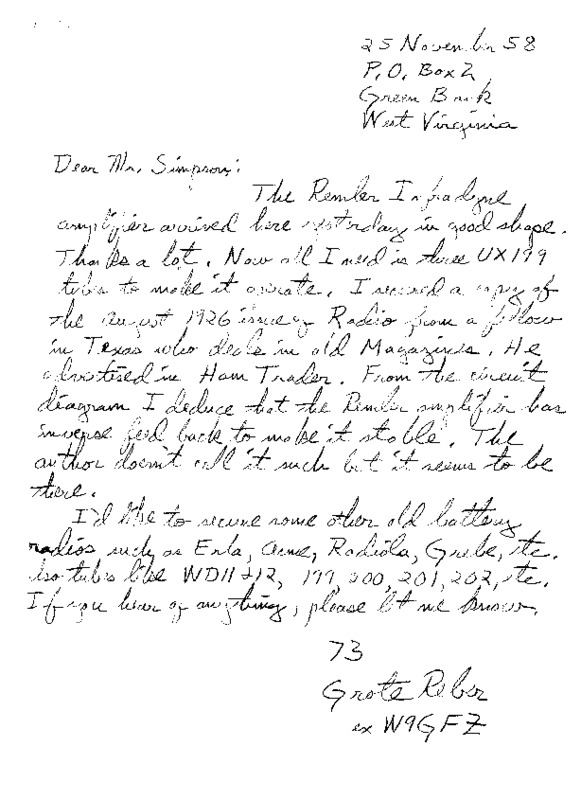 25 November 58
P.O. Box 2
Green Bank
West Virginia
Dear Mr. Simpson:
The Remler Infradyne
amplifier arrived here yesterday in good shape.
Thanks a lot. Now all I need is three UX199
tubes to make it operate. I secured a copy of
the August 1926 issue of Radio from a fellow
in Texas who deals in old Magazines. He
advertised in Ham Trader. From the circuit
diagram I deduce that the Remler amplifier has
inverse feed back to make it stable. The
author doesn't call it such but it seems to be
there.
I'd like to secure some other old battery
radios such as Erla, Acme, Radiola, Grebe, etc.
Also tubes like WD11 & 12, 199, 200, 201, 202, etc.
If you hear of anything, please let me know.
73
Grote Reber
ex W9GFZ